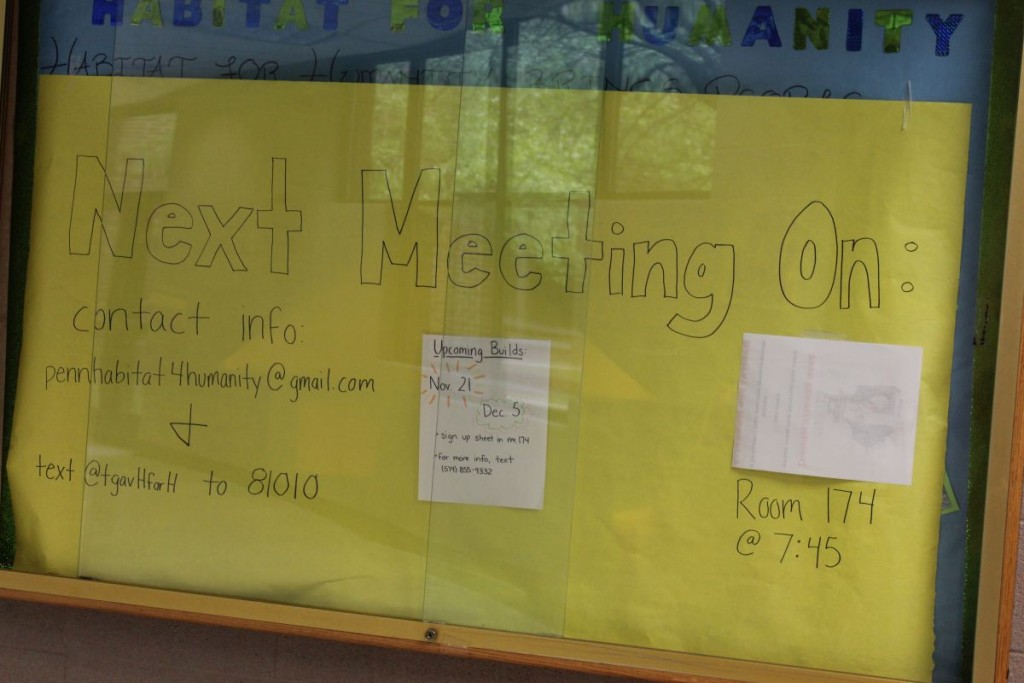 HABITAT FOR HUMANITY
HABITAT FOR HUMANITY BRINGS PEOPLE
Next Meeting On:
contact info:
pennhabitat4humanity@gmail.com
+
text @tgavHforH to 81010
Upcoming Builds:
Nov. 21
Dec 5
• sign up sheet in rm 174
• for more info, text
(574) 855-9332
Room 174
@ 7:45